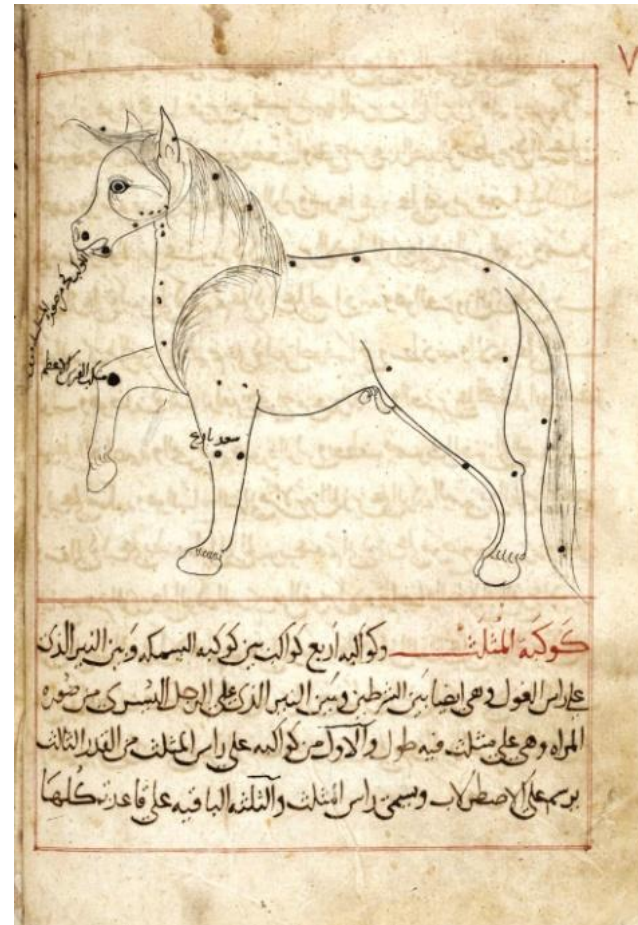 ٧
منكب الفرس الاعظم
سعد بارع
كوكبة المثلث وكواكبه اربع كواكب بين كوكبه السمكه وبين النير الذى
على راس الغول وهى ايضا بين الشرطين وبين النير الذى على الرجل اليسرى من صوره
المراه وهى على مثلث فيه طول والاول من كواكبه على راس المثلث من القدر الثالث
يرسم على الاصطرلاب ويسمى راس المثلث والثلثه الباقيه على قاعدته كلها